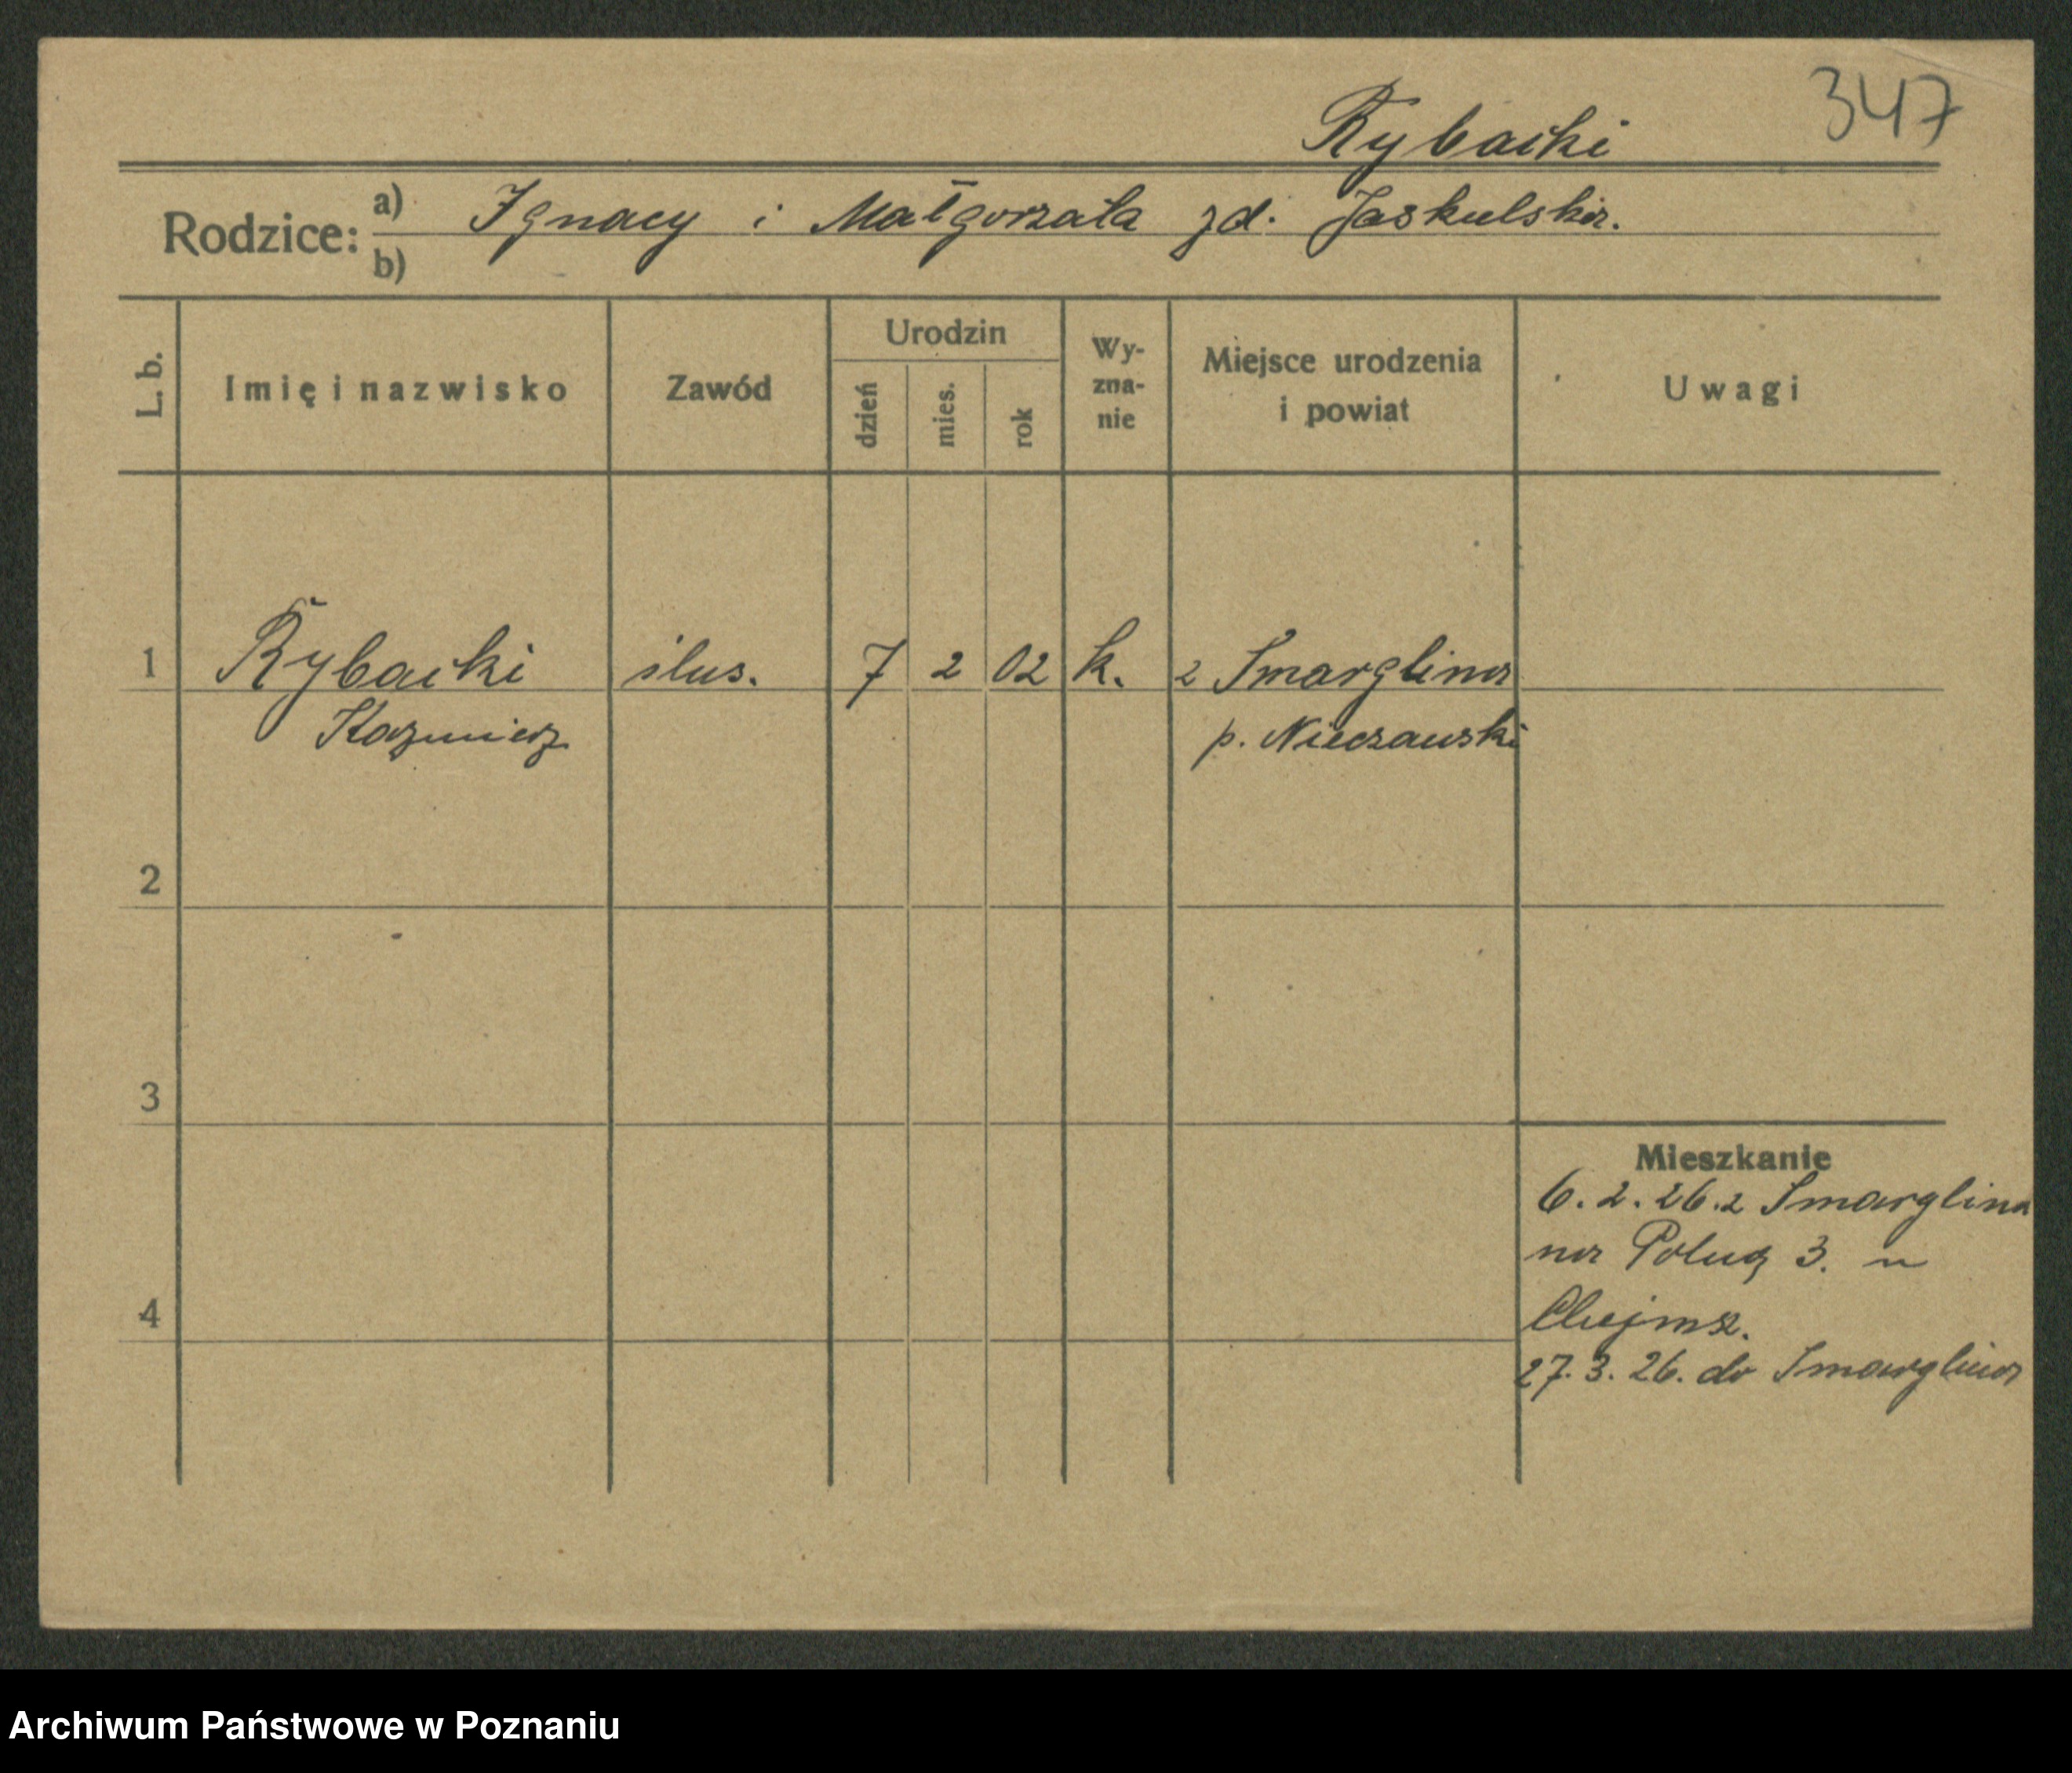 347
Rybacki
Rodzice: a) Ignacy i Małgorzata zd. Jaskulska.
b)
L. b. Imię i nazwisko Zawód Urodzin dzień mies. rok Wy-zna-nie Miejsce urodzenia i powiat Uwagi
1 Rybacki ślus. 7 2 02 k. z Smarglina
Kazmierz p. Nieszawski
2
3
Mieszkanie
6. 2. 26. z Smarglina
na 3. u
4
27. 3. 26. do Smarglina
Archiwum Państwowe w Poznaniu